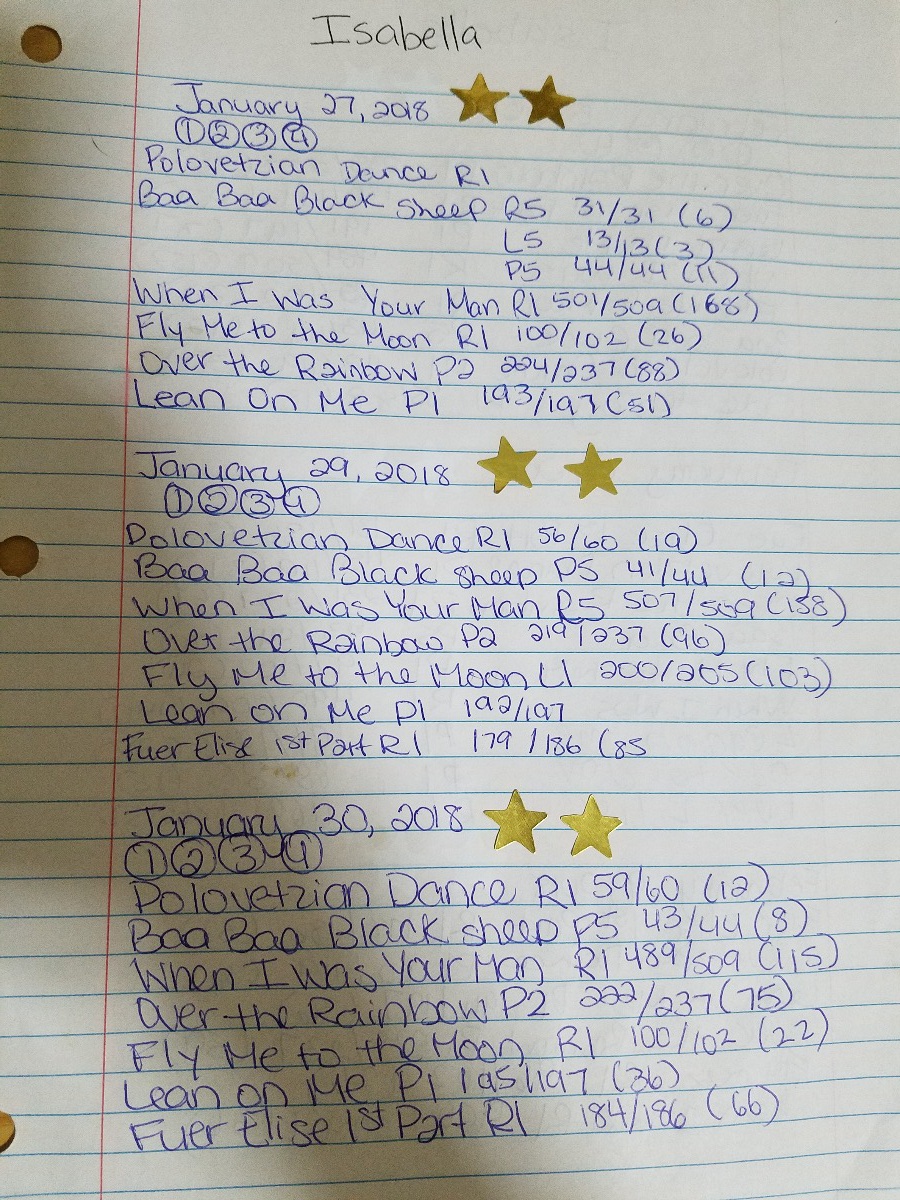 Isabella
January 27, 2018
① ② ③ ④
Polovetzian Dance R1
Baa Baa Black Sheep R5 31/31 (6)
L5 13/13 (3)
P5 44/44 (11)
When I Was Your Man R1 501/509 (168)
Fly Me to the Moon R1 100/102 (26)
Over the Rainbow P2 224/237 (88)
Lean On Me P1 193/197 (51)
January 29, 2018
① ② ③ ④
Polovetzian Dance R1 56/60 (19)
Baa Baa Black Sheep P5 41/44 (12)
When I Was Your Man R5 507/509 (158)
Over the Rainbow P2 219/237 (96)
Fly Me to the Moon L1 200/205 (103)
Lean on Me P1 192/197
Fuer Elise 1st Part R1 179/186 (85
January 30, 2018
① ② ③ ④
Polovetzian Dance R1 59/60 (12)
Baa Baa Black sheep P5 43/44 (8)
When I Was Your Man R1 489/509 (115)
Over the Rainbow P2 222/237 (75)
Fly Me to the Moon R1 100/102 (22)
Lean on Me P1 195/197 (36)
Fuer Elise 1st Part R1 184/186 (66)